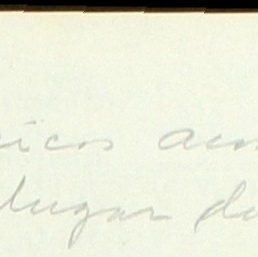 icos aco
lugar do